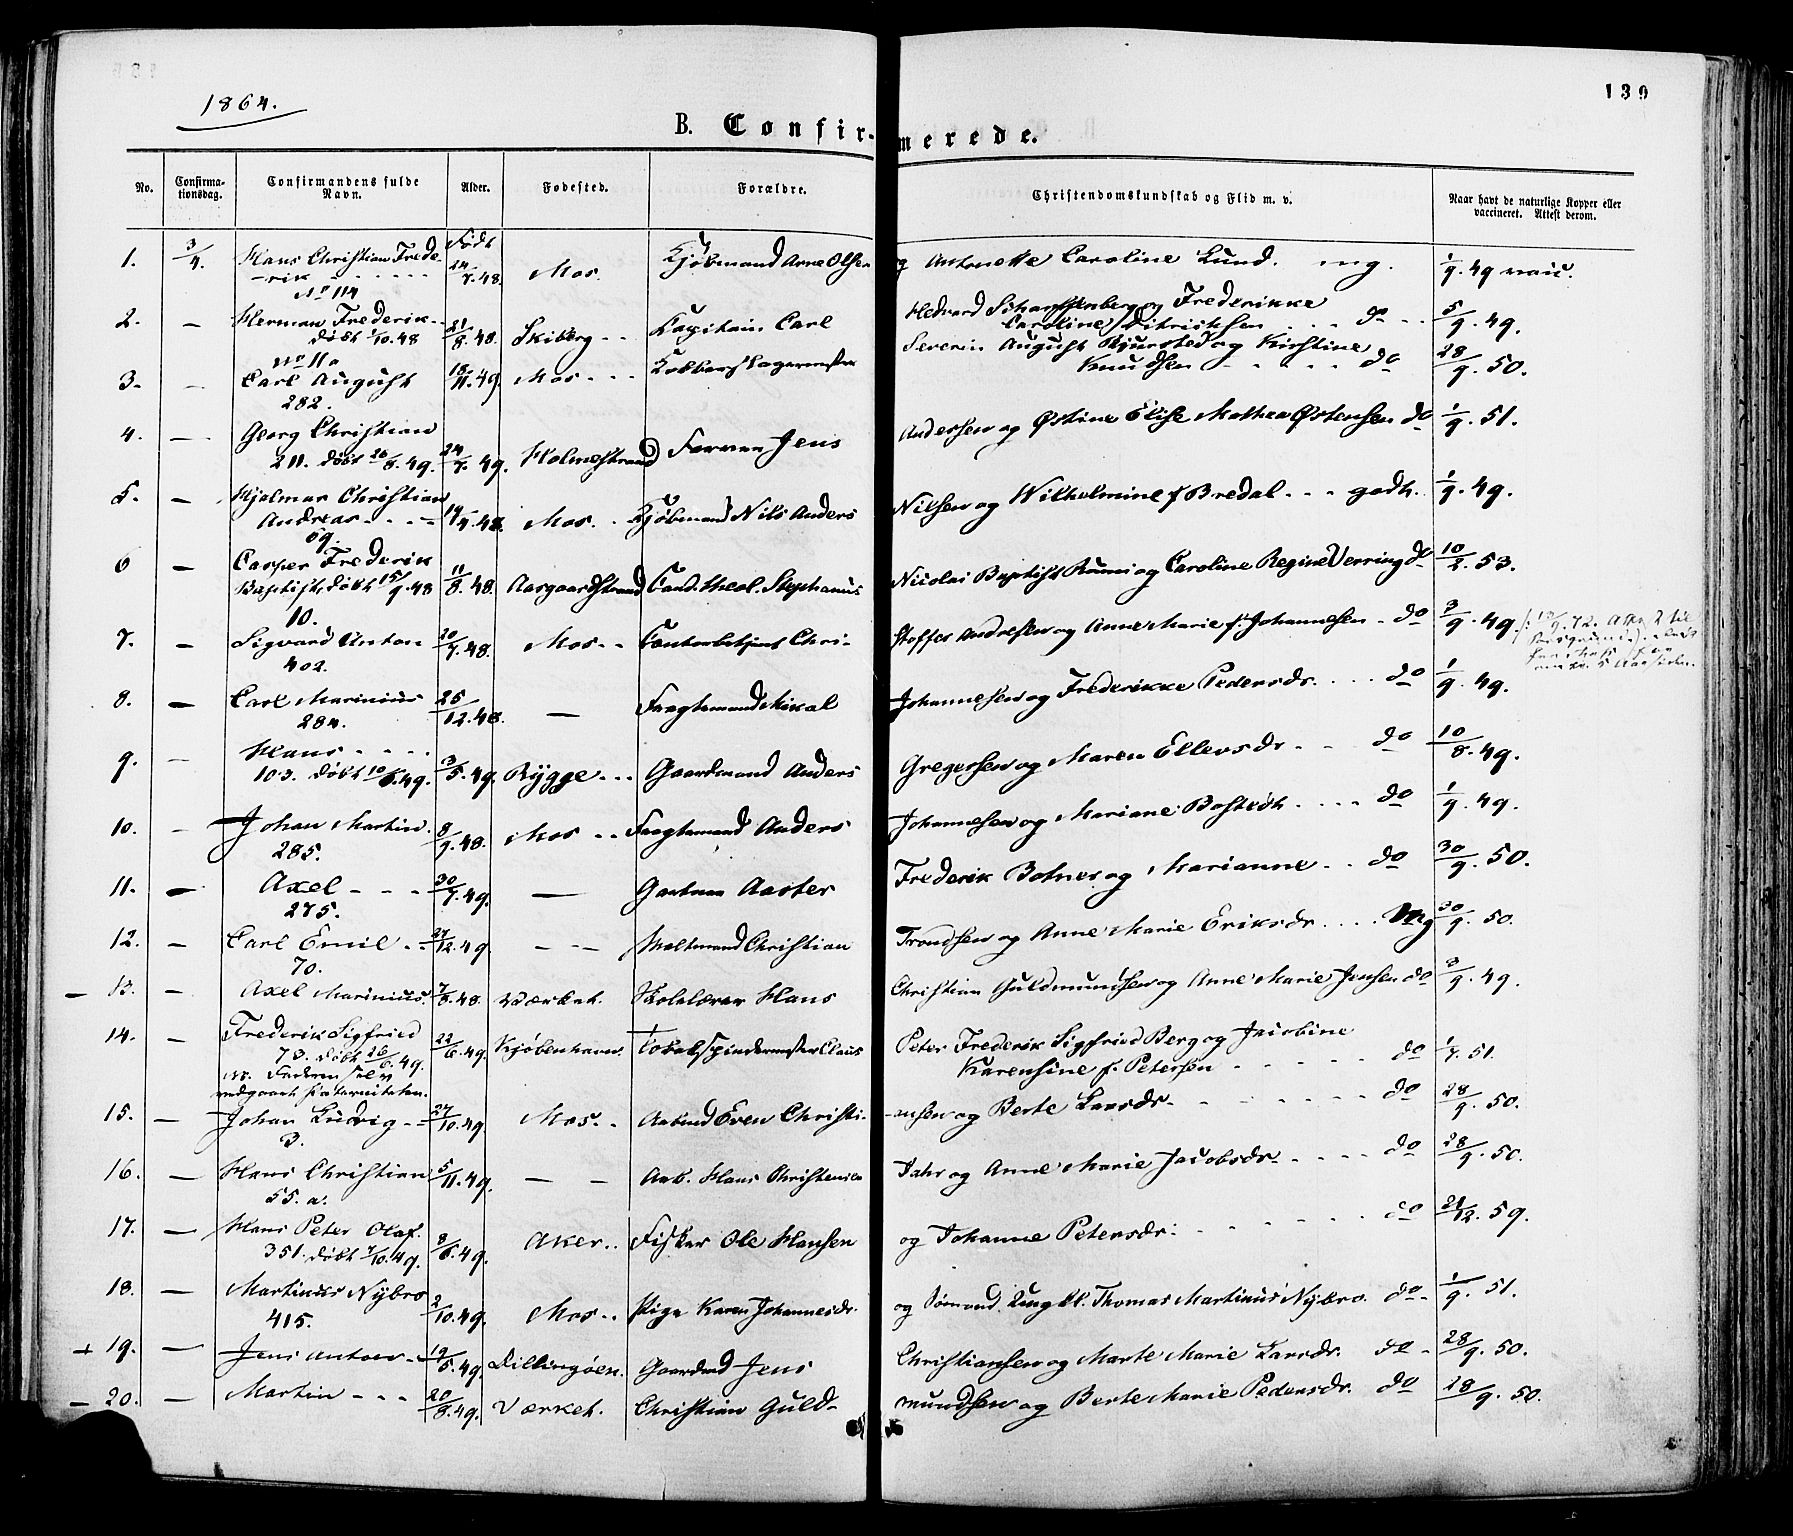 1864.
139
B. Confirmerede.
No. Confirmationsdag. Confirmandens fulde Navn. Alder. Fødested. Forældre. Christendomskundskab og Flid m. v. Naar havt de naturlige Kopper eller vaccineret. Attest derom.
1. 3/4. Hans Christian Frede- Født Kjøbmand Arne Olsen og Antonette Caroline Lund. mg. 1/9. 49
-rik 24/7. 48. Mos.
No 114
2. — Herman Frederik 21/8. 48. Skiberg Kapitain Carl Hedvard Scharffenberg og Frederikke
døbt 1/10. 48 Caroline Ditrichsen do 5/9. 49.
No 110
3. — Carl August 18/11. 49. Mos Severin August Bjursted og Kirstine
282. Knudsen do 28/9. 50.
4. — Georg Christian 24/7. 49. Holmestrand Formand Jens Andersen og Østine Elise Mathea Østensen do 1/9. 51.
211. døbt 26/8. 49.
5. — Hjalmar Christian Nilsen og Wilhelmine f. Bredal godh. 1/9. 49.
Andreas 14/4. 48. Mos. Kjøbmand Nils Anders
69.
6 — Casper Frederik 11/8. 48. Aasgaardstrand Cand. theol. Stephanus Nicolai Baptist Ruuni og Caroline Regine Verring do 10/2. 53.
Baptist, døbt 15/9. 48
10.
7. — Sigvard Anton 20/7. 48. Mos Contorbetjent Chri- Stoffer Andresen og Anne Marie f. Johannesen do 3/9. 49
402.
8. — Carl Marinius 25/12. 48. — Fragtemand Mikal Johannesen og Frederikke Pedersdr. do 1/9. 49.
284.
9. — Hans 3/5. 49. Rygge Gaardmand Anders Gregersen og Maren Ellevsdr do 10/8. 49.
103. døbt 10/6. 49.
10. — Johan Martin. 8/9. 48. Mos Fragtemand Anders Johannesen og Mariane Bostedt do 1/9. 49.
285.
11. — Axel 30/7. 49. — Frederik Botner og Marianne do 30/9. 50.
275.
12. — Carl Emil 27/12. 49. — Christian Trondsen og Anne Marie Eriksdr. Mg 30/9. 50.
70.
— 13. — Axel Marinius. 7/8. 48. Værket. Skolelærer Hans Christian Guldmundsen og Anne Marie Jensen do 3/9. 49.
14. — Frederik Sigfried 22/6. 49. Kjøbenhavn. Tobakspindermester Claus Peter Frederik Sigfried Berg og Jacobine
73. døbt 26/8. 49. Karensine f. Petersen do 1/7. 51.
NB. Faderen selv
vedgaaet paterniteten.
15. — Johan Ludvig 27/10. 49. Mos. Arbmd Even Christi- -ansen og Berte Larsdr. do 28/9. 50.
3.
16. — Hans Christian 5/11. 49. — — Arb. Hans Christensen Jahr og Anne Marie Jacobsdr. do 28/9. 50.
55. a.
17. — Hans Peter Olaf. 8/6. 49. Aker Fisker Ole Hansen og Johanne Petersdr. do 21/12. 59.
351. døbt 7/10. 49.
18. — Martinius Nybro 2/10. 49. Mos Pige Karen Johannesdr. og Sømand, Ungkl. Thomas Martinus Nybro. do 1/9. 51.
415.
+ 19. — Jens Anton 19/5. 49. Dillingøen. Gaardmd Jens Christiansen og Marte Marie Larsdr. do 28/9. 50.
— 20. — Martin 20/8. 49. Værket. Christian Guld- mundsen og Berte Marie Pedersdr. do 28/9. 50.